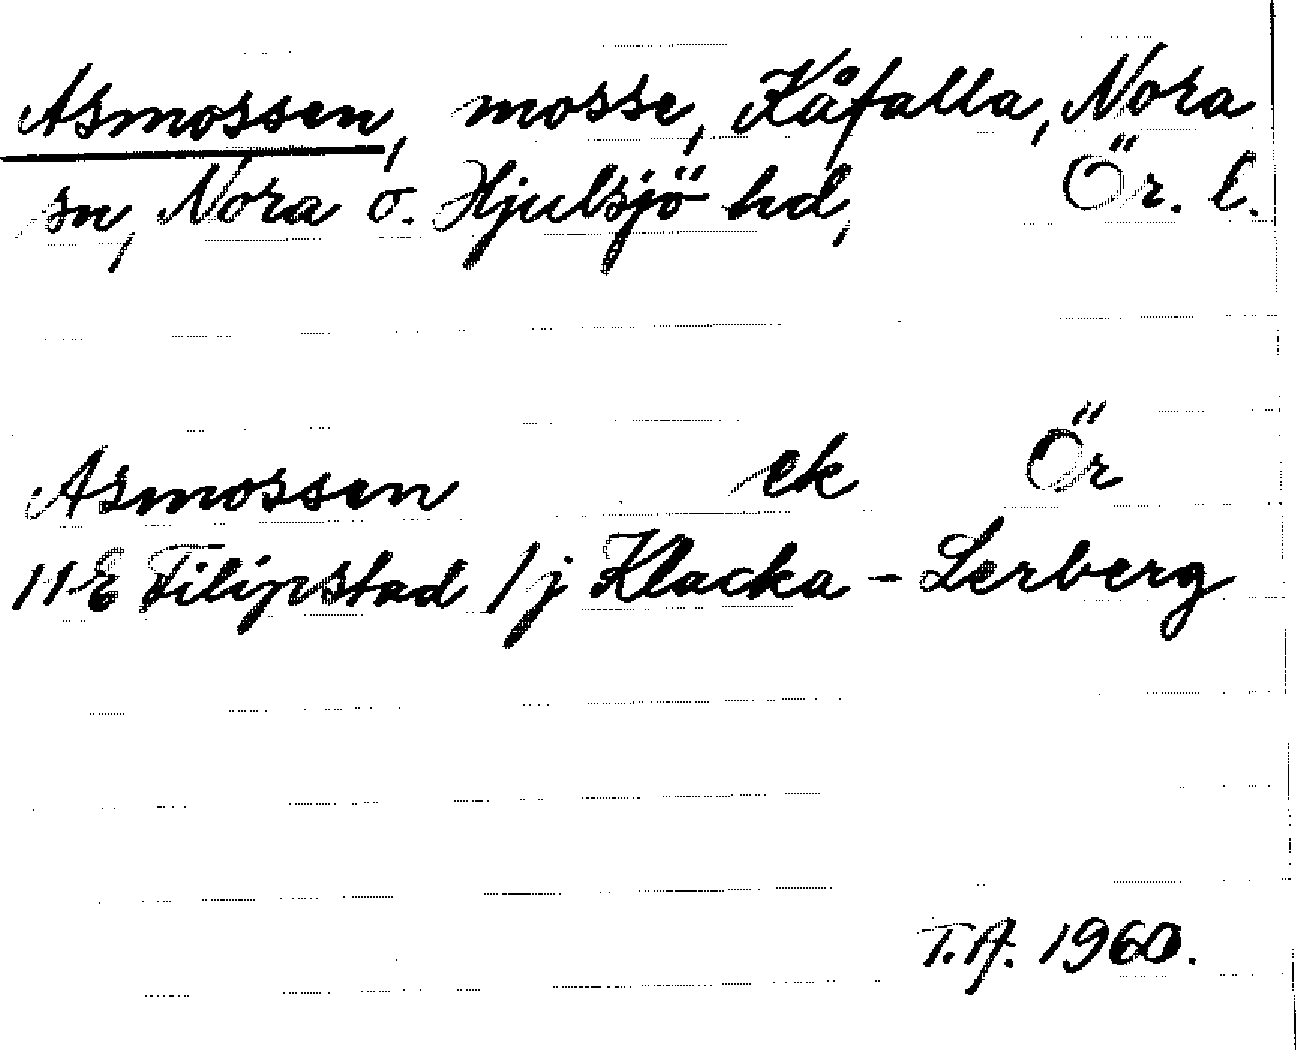 Asmossen, mosse, Kåfalla, Nora
sn, Nora o. Hjulsjö hd, Ör. l.
Asmossen ek Ör
11E Filipstad 1j Klacka - Lerberg
T.A. 1960.